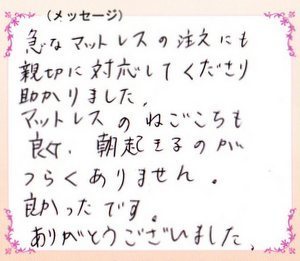 (メッセージ)
急なマットレスの注文にも
親切に対応してくださり
助かりました。
マットレスのねごこちも
良く、朝起きるのが
つらくありません。
良かったです。
ありがとうございました、